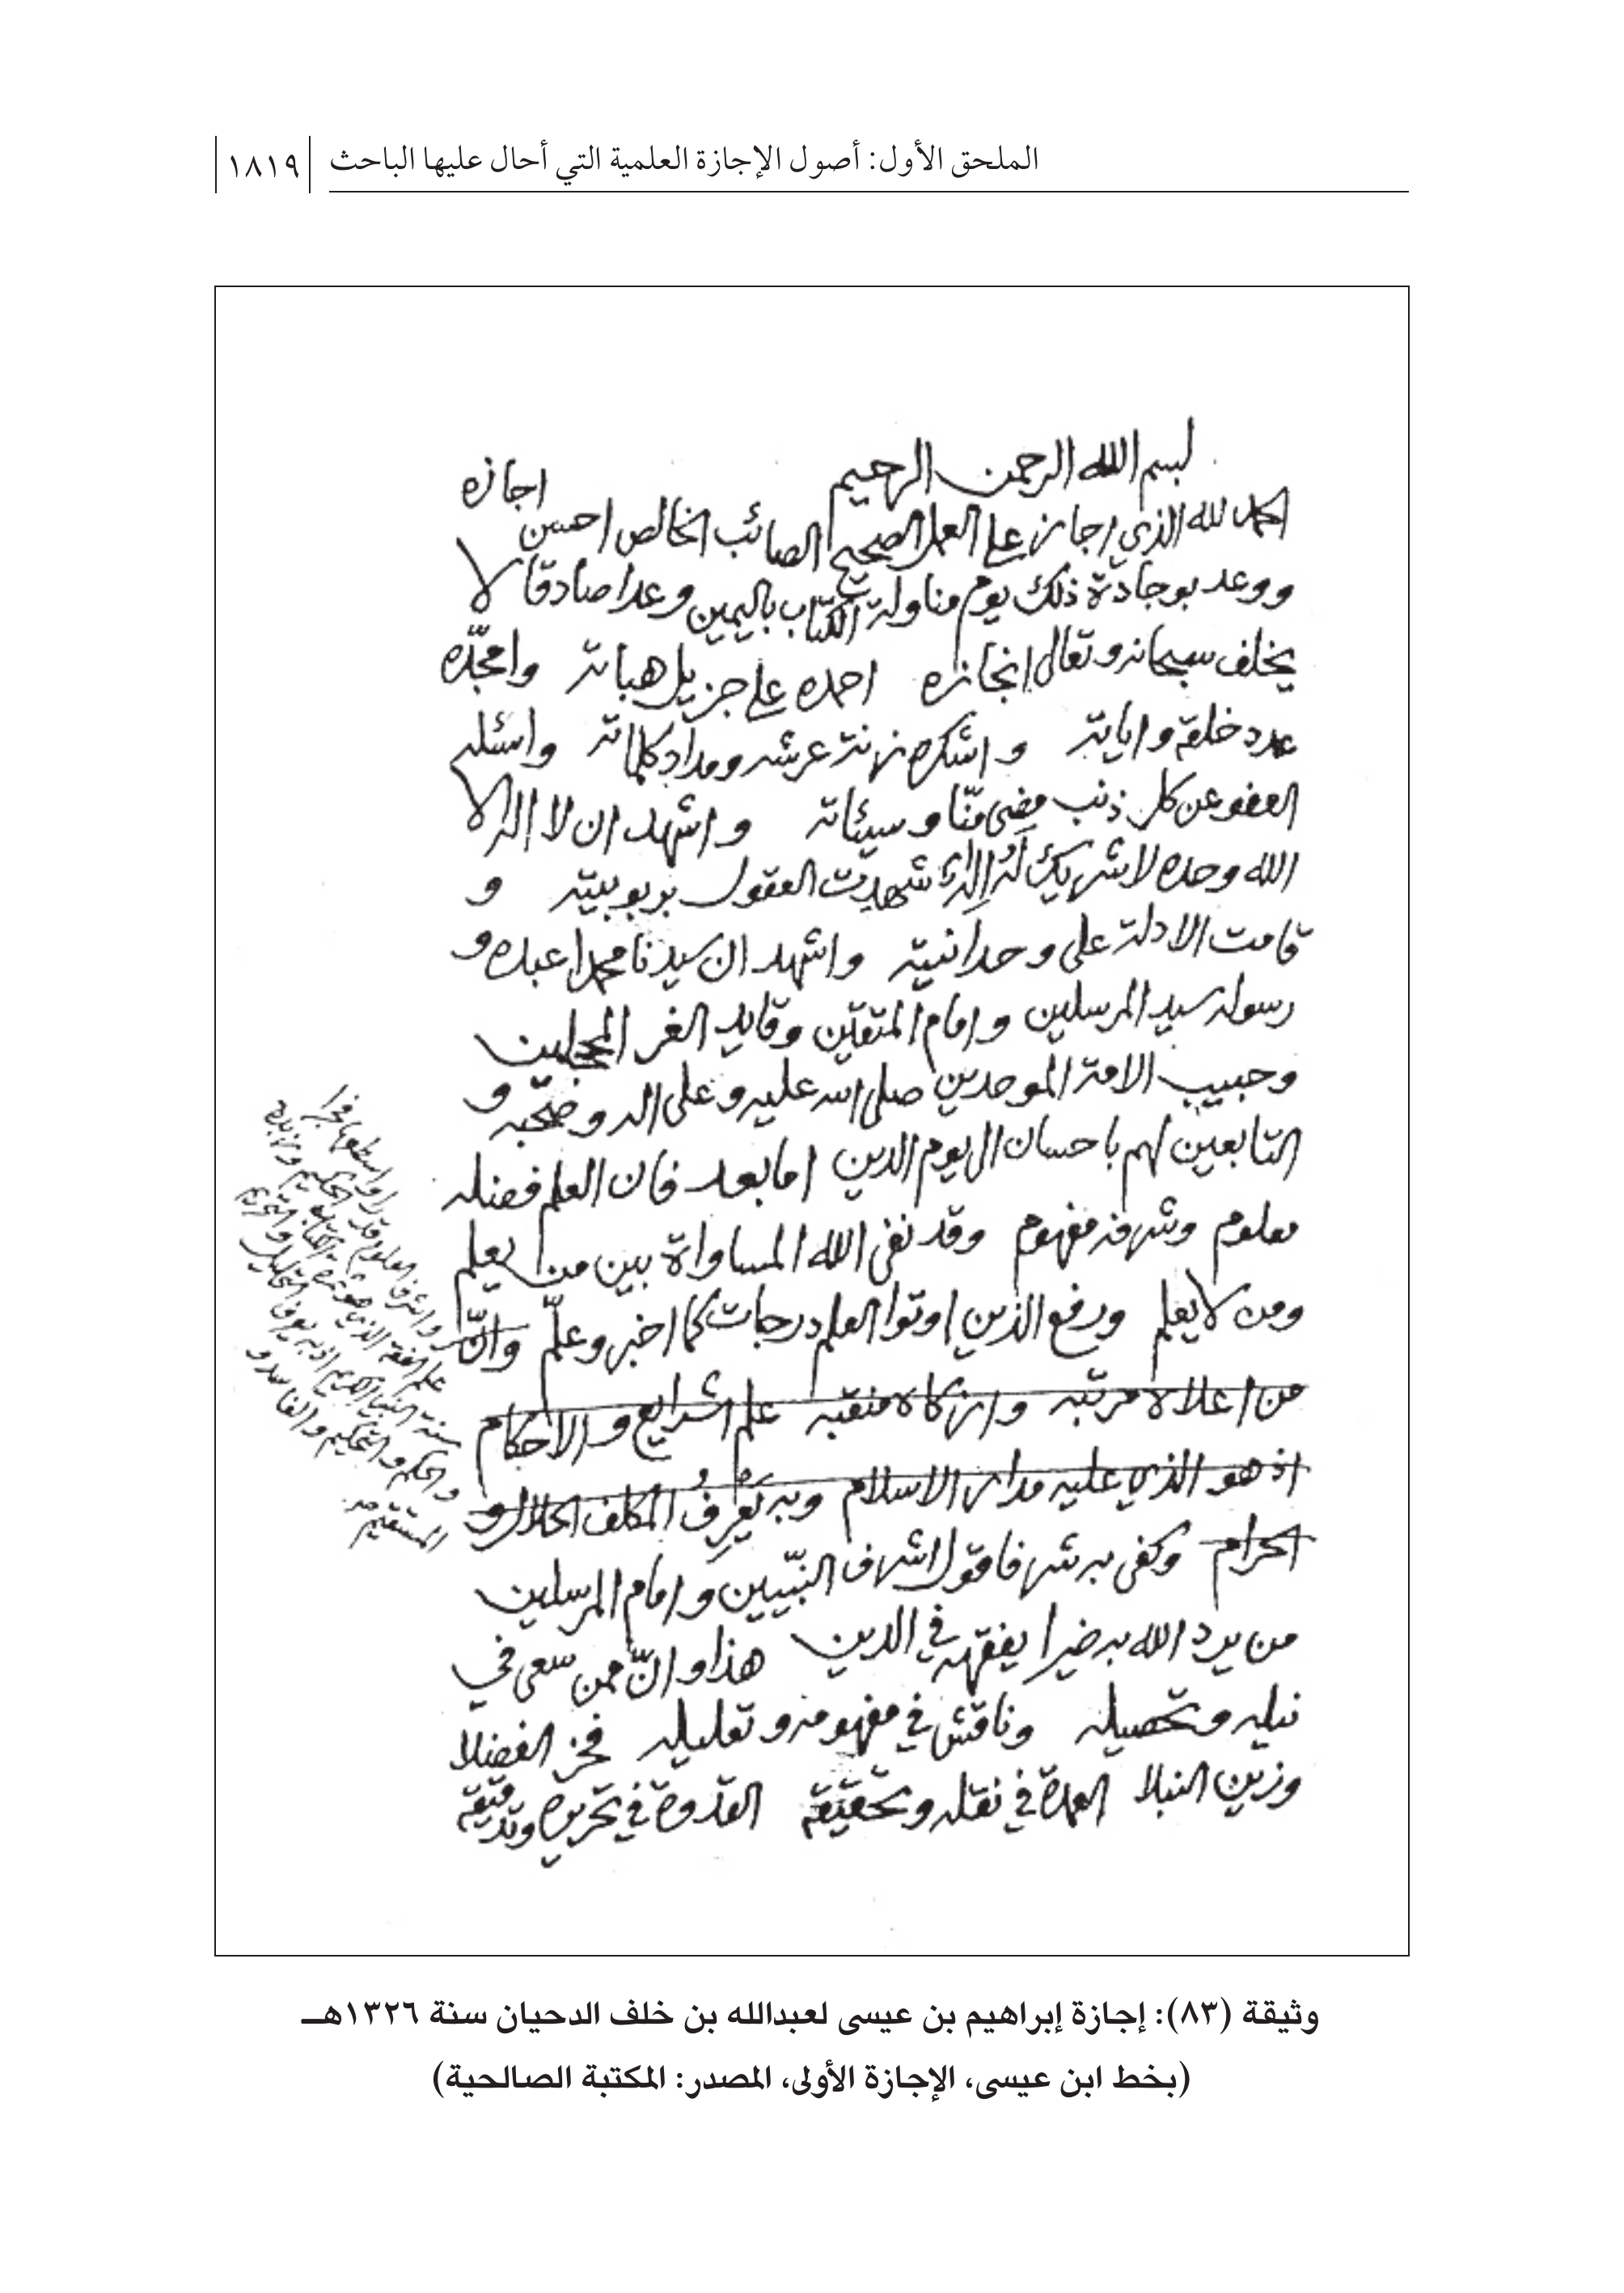 الملحق الأول: أصول الإجازة العلمية التي أحال عليها الباحث ١٨١٩
بسم الله الرحمن الرحيم
الحمد لله الذي اجاز على العمل الصحيح الصائب الخالص احسن اجازه
ووعد بوجادة ذلك يوم مناولة الكتاب باليمين وعدا صادقا لا
يخلف سبحانه وتعالى انجازه احمده على جزيل هباته وامجّده
عدد خلقه واياته واشكره زنة عرشه ومداد كلماته واسئله
العفو عن كل ذنب مضى منّا وسيئاته واشهد ان لا اله الا
الله وحده لا شريك له اله شهدت العقول بربوبيته و
قامت الادلة على وحدانيته واشهد ان سيدنا محمدا عبده و
رسوله سيد المرسلين وامام المتقين وقايد الغر المحجلين
وحبيب الامة الموحدين صلى الله عليه وعلى اله وصحبه و
التابعين لهم باحسان الى يوم الدين اما بعد فان العلم فضله
معلوم وشرفه مفهوم وقد نفى الله المساواة بين من يعلم
ومن لا يعلم ورفع الذين اوتوا العلم درجات كما اخبر وعلّم وانّ
من اعلاه مرتبه وازكاه منقبه علم الشرايع والاحكام
اذ هو الذي عليه مدار الاسلام وبه يَعْرِفُ المكلف الحلال و
الحرام وكفى به شرفا قول اشرف النبيين وامام المرسلين
من يرد الله به خيرا يفقهه في الدين هذا وانّ ممن سعى في
نيله وتحصيله وناقش في مفهومه وتعليله فخر الفضلا
وزين النبلا العمدة في نقله وتحقيقه القدوة في تحريره وتدقيقه
واسطعها فجرا
واشرف العلوم قدرا
علم الفقه الذي هو ثمرة الكتاب الحكيم وزبدة
سنة النبي الكريم اذ به يعرف التحليل والتحريم
والحكم والتحكيم والفاسد و
المستقيم صح
وثيقة (٨٣): إجازة إبراهيم بن عيسى لعبدالله بن خلف الدحيان سنة ١٣٢٦هـ
(بخط ابن عيسى، الإجازة الأولى، المصدر: المكتبة الصالحية)